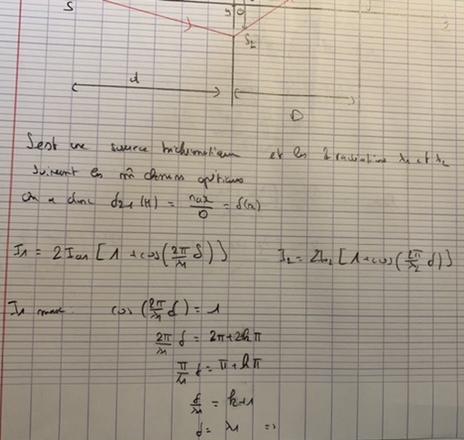 S
S₂
d
D
S est une source et les 2 radiations λ₁ et λ₂
suivent les m̂ chemins optiques
on a donc δ₂₋₁(M) = nax/D = δ(x)
I₁ = 2I₀₁[1+cos(2π/λ₁ δ)] I₂ = 2I₀₂[1+cos(2π/λ₂ δ)]
I₁ max cos(2π/λ₁ δ) = 1
2π/λ₁ δ = 2π+2kπ
π/λ₁ δ = π+kπ
δ/λ₁ = k+1
δ = λ₁ =>